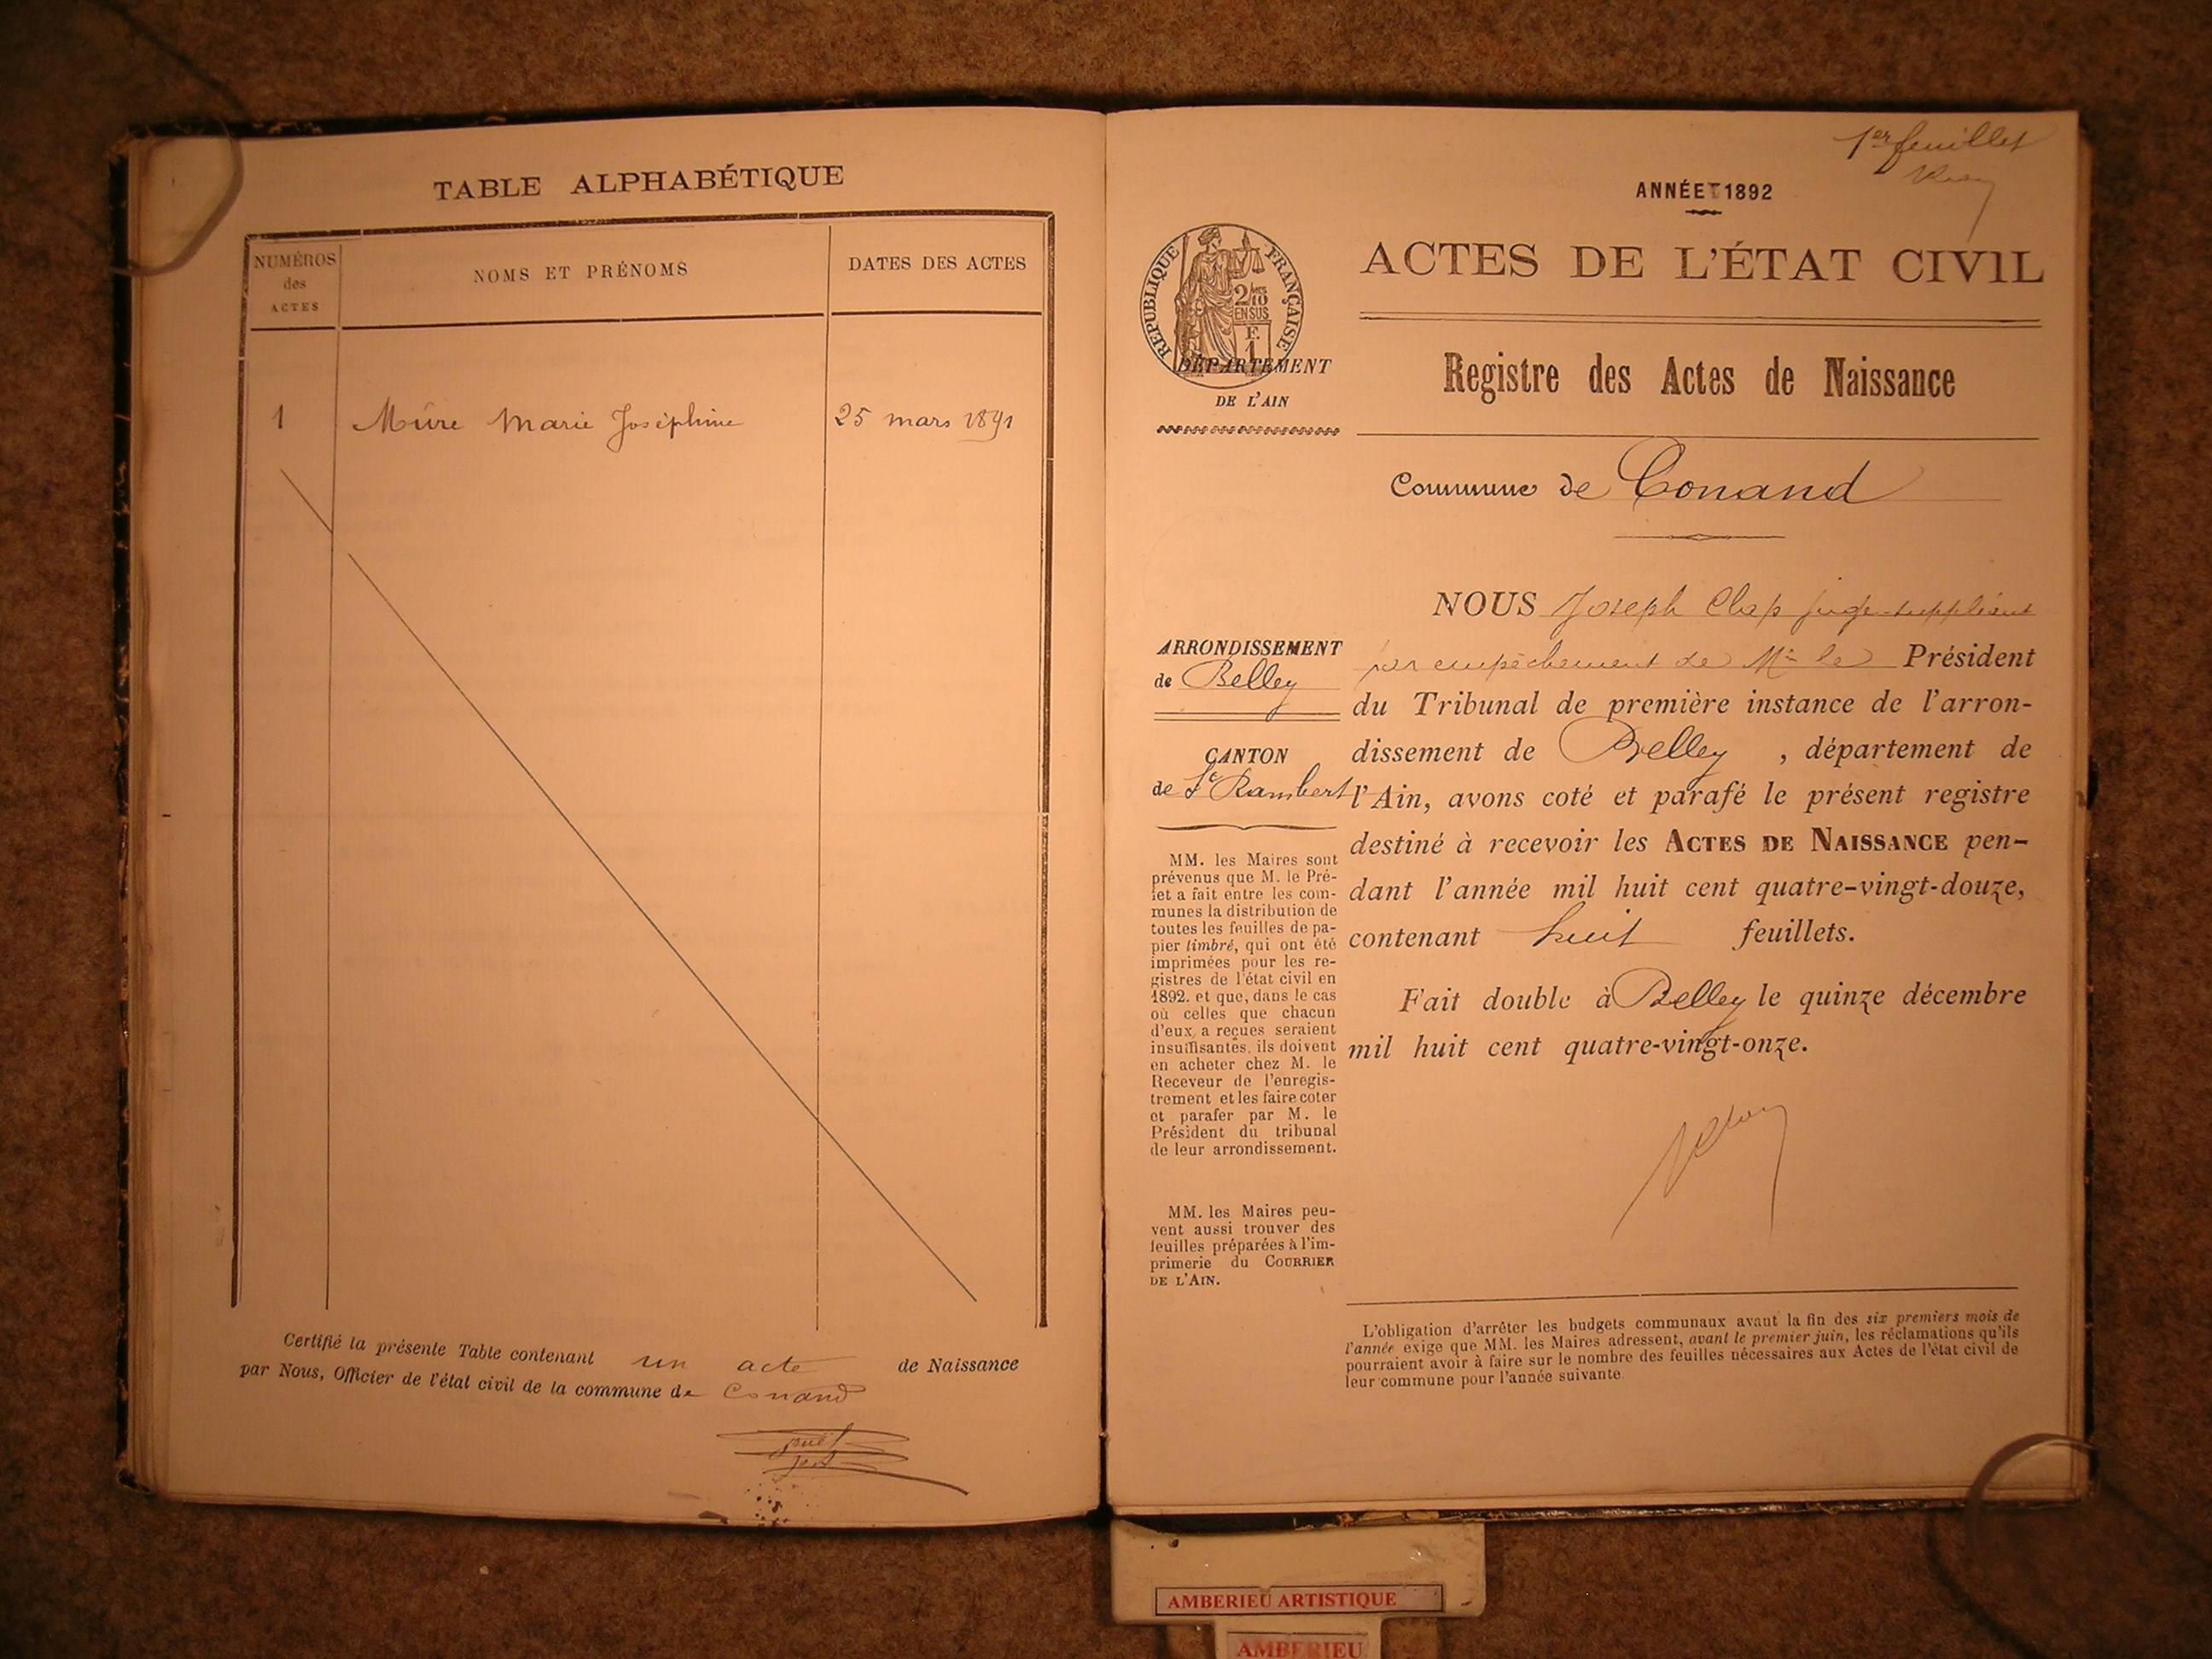 TABLE ALPHABÉTIQUE
NUMÉROS
des
ACTES
NOMS ET PRÉNOMS
DATES DES ACTES
1
Mûre Marie Joséphine
25 mars 1891
Certifié la présente Table contenant un acte de Naissance
par Nous, Officier de l'état civil de la commune de Conand
1er feuillet
ANNÉE 1892
ACTES DE L'ÉTAT CIVIL
RÉPUBLIQUE FRANÇAISE
2/10
EN SUS
F.
1
DÉPARTEMENT
DE L'AIN
Registre des Actes de Naissance
Commune de Conand
ARRONDISSEMENT
de Belley
CANTON
de St Rambert
MM. les Maires sont
prévenus que M. le Pré-
fet a fait entre les com-
munes la distribution de
toutes les feuilles de pa-
pier timbré, qui ont été
imprimées pour les re-
gistres de l'état civil en
1892. et que, dans le cas
où celles que chacun
d'eux a reçues seraient
insuffisantes, ils doivent
en acheter chez M. le
Receveur de l'enregis-
trement et les faire coter
et parafer par M. le
Président du tribunal
de leur arrondissement.
MM. les Maires peu-
vent aussi trouver des
feuilles préparées à l'im-
primerie du COURRIER
DE L'AIN.
NOUS Joseph Clap juge-suppléant
par empêchement de Mr le Président
du Tribunal de première instance de l'arron-
dissement de Belley , département de
l'Ain, avons coté et parafé le présent registre
destiné à recevoir les ACTES DE NAISSANCE pen-
dant l'année mil huit cent quatre-vingt-douze,
contenant huit feuillets.
Fait double à Belley le quinze décembre
mil huit cent quatre-vingt-onze.
L'obligation d'arrêter les budgets communaux avant la fin des six premiers mois de
l'année exige que MM. les Maires adressent, avant le premier juin, les réclamations qu'ils
pourraient avoir à faire sur le nombre des feuilles nécessaires aux Actes de l'état civil de
leur commune pour l'année suivante.
AMBERIEU ARTISTIQUE
AMBERIEU